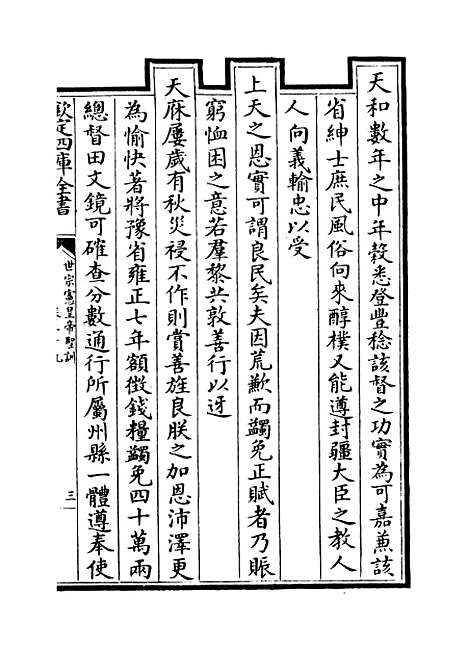 天和數年之中年穀悉登豐稔該督之功實為可嘉兼該
省紳士庶民風俗向來醇樸又能遵封疆大臣之教人
人向義輸忠以受
上天之恩實可謂良民矣夫因荒歉而蠲免正賦者乃賑
窮恤困之意若羣黎共敦善行以迓
天庥屢歲有秋災祲不作則賞善旌良朕之加恩沛澤更
為愉快著將豫省雍正七年額徴錢糧蠲免四十萬兩
總督田文鏡可確查分數通行所屬州縣一體遵奉使
欽定四庫全書
世宗憲皇帝聖訓
三